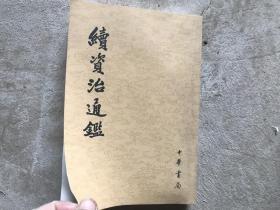 續資治通鑑
中華書局